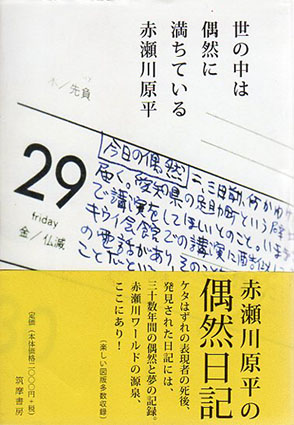 世の中は
偶然に
満ちている
赤瀬川原平
木/先負
29
friday
金/仏滅
今日の偶然 二、三日前、
届く。愛知県の足助町という
で講演をしてほしいとのこと。
での講演に
の電話があり、その
ことだと
赤瀬川原平の
偶然日記
ケタはずれの表現者の死後、
発見された日記には、
三十数年間の偶然と夢の記録。
赤瀬川ワールドの源泉、
ここにあり!
(楽しい図版多数収録)
定価(本体価格二〇〇〇円+税)
筑摩書房